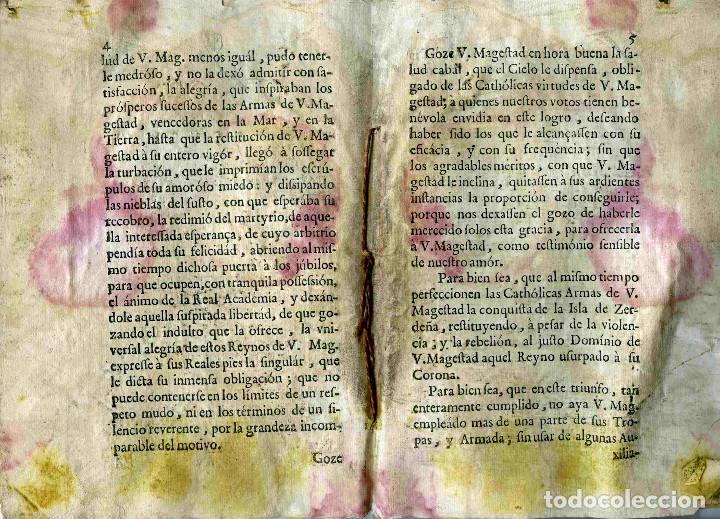 4
lud de V. Mag. menos iguál, pudo tener-
le medróso, y no la dexó admitir con sa-
tisfacción, la alegría, que inspiraban los
prósperos sucessos de las Armas de V. Ma-
gestad, vencedoras en la Mar, y en la
Tierra, hasta que la restitución de V. Ma-
gestad à su entero vigór, llegó à sossegar
la turbación, que le imprimían los escrú-
pulos de su amoróso miedo: y dissipando
las nieblas del susto, con que esperába su
recobro, la redimió del martyrio, de aque-
lla interessada esperança, de cuyo arbitrio
pendía toda su felicidad, abriendo al mis-
mo tiempo dichosa puerta à los júbilos,
para que ocupen, con tranquila possessión,
el ánimo de la Real Académia, y dexán-
dole aquella suspirada libertád, de que go-
zando el indulto que la ofrece, la vni-
versal alegría de estos Reynos de V. Mag.
expresse à sus Reales pies la singulár, que
le dicta su inmensa obligación; que no
puede contenerse en los límites de un res-
peto mudo, ni en los términos de un si-
lencio reverente, por la grandeza incom-
parable del motivo.
Goze
5
Goze V. Magestad en hora buena la sa-
lud cabál, que el Cielo le dispensa, obli-
gado de las Cathólicas virtudes de V. Ma-
gestad; à quienes nuestros votos tienen be-
névola envidia en este logro, deseando
haber sido los que le alcançassen con su
eficácia, y con su frequencia; sin que
los agradables méritos, con que V. Ma-
gestad le inclina, quitassen à sus ardientes
instancias la proporción de conseguirle;
porque nos dexassen el gozo de haberle
merecido solos esta gracia, para ofrecerla
à V. Magestad, como testimónio sensible
de nuestro amór.
Para bien sea, que al mismo tiempo
perfeccionen las Cathólicas Armas de V.
Magestad la conquista de la Isla de Zer-
deña, restituyendo, à pesar de la violen-
cia; y la rebelión, al justo Domínio de
V. Magestad aquel Reyno usurpado à su
Corona.
Para bien sea, que en este triunfo, tan
enteramente cumplido, no aya V. Mag.
empleádo mas de una parte de sus Tro-
pas, y Armada; sin usar de algunas Au-
xilia-
todocoleccion